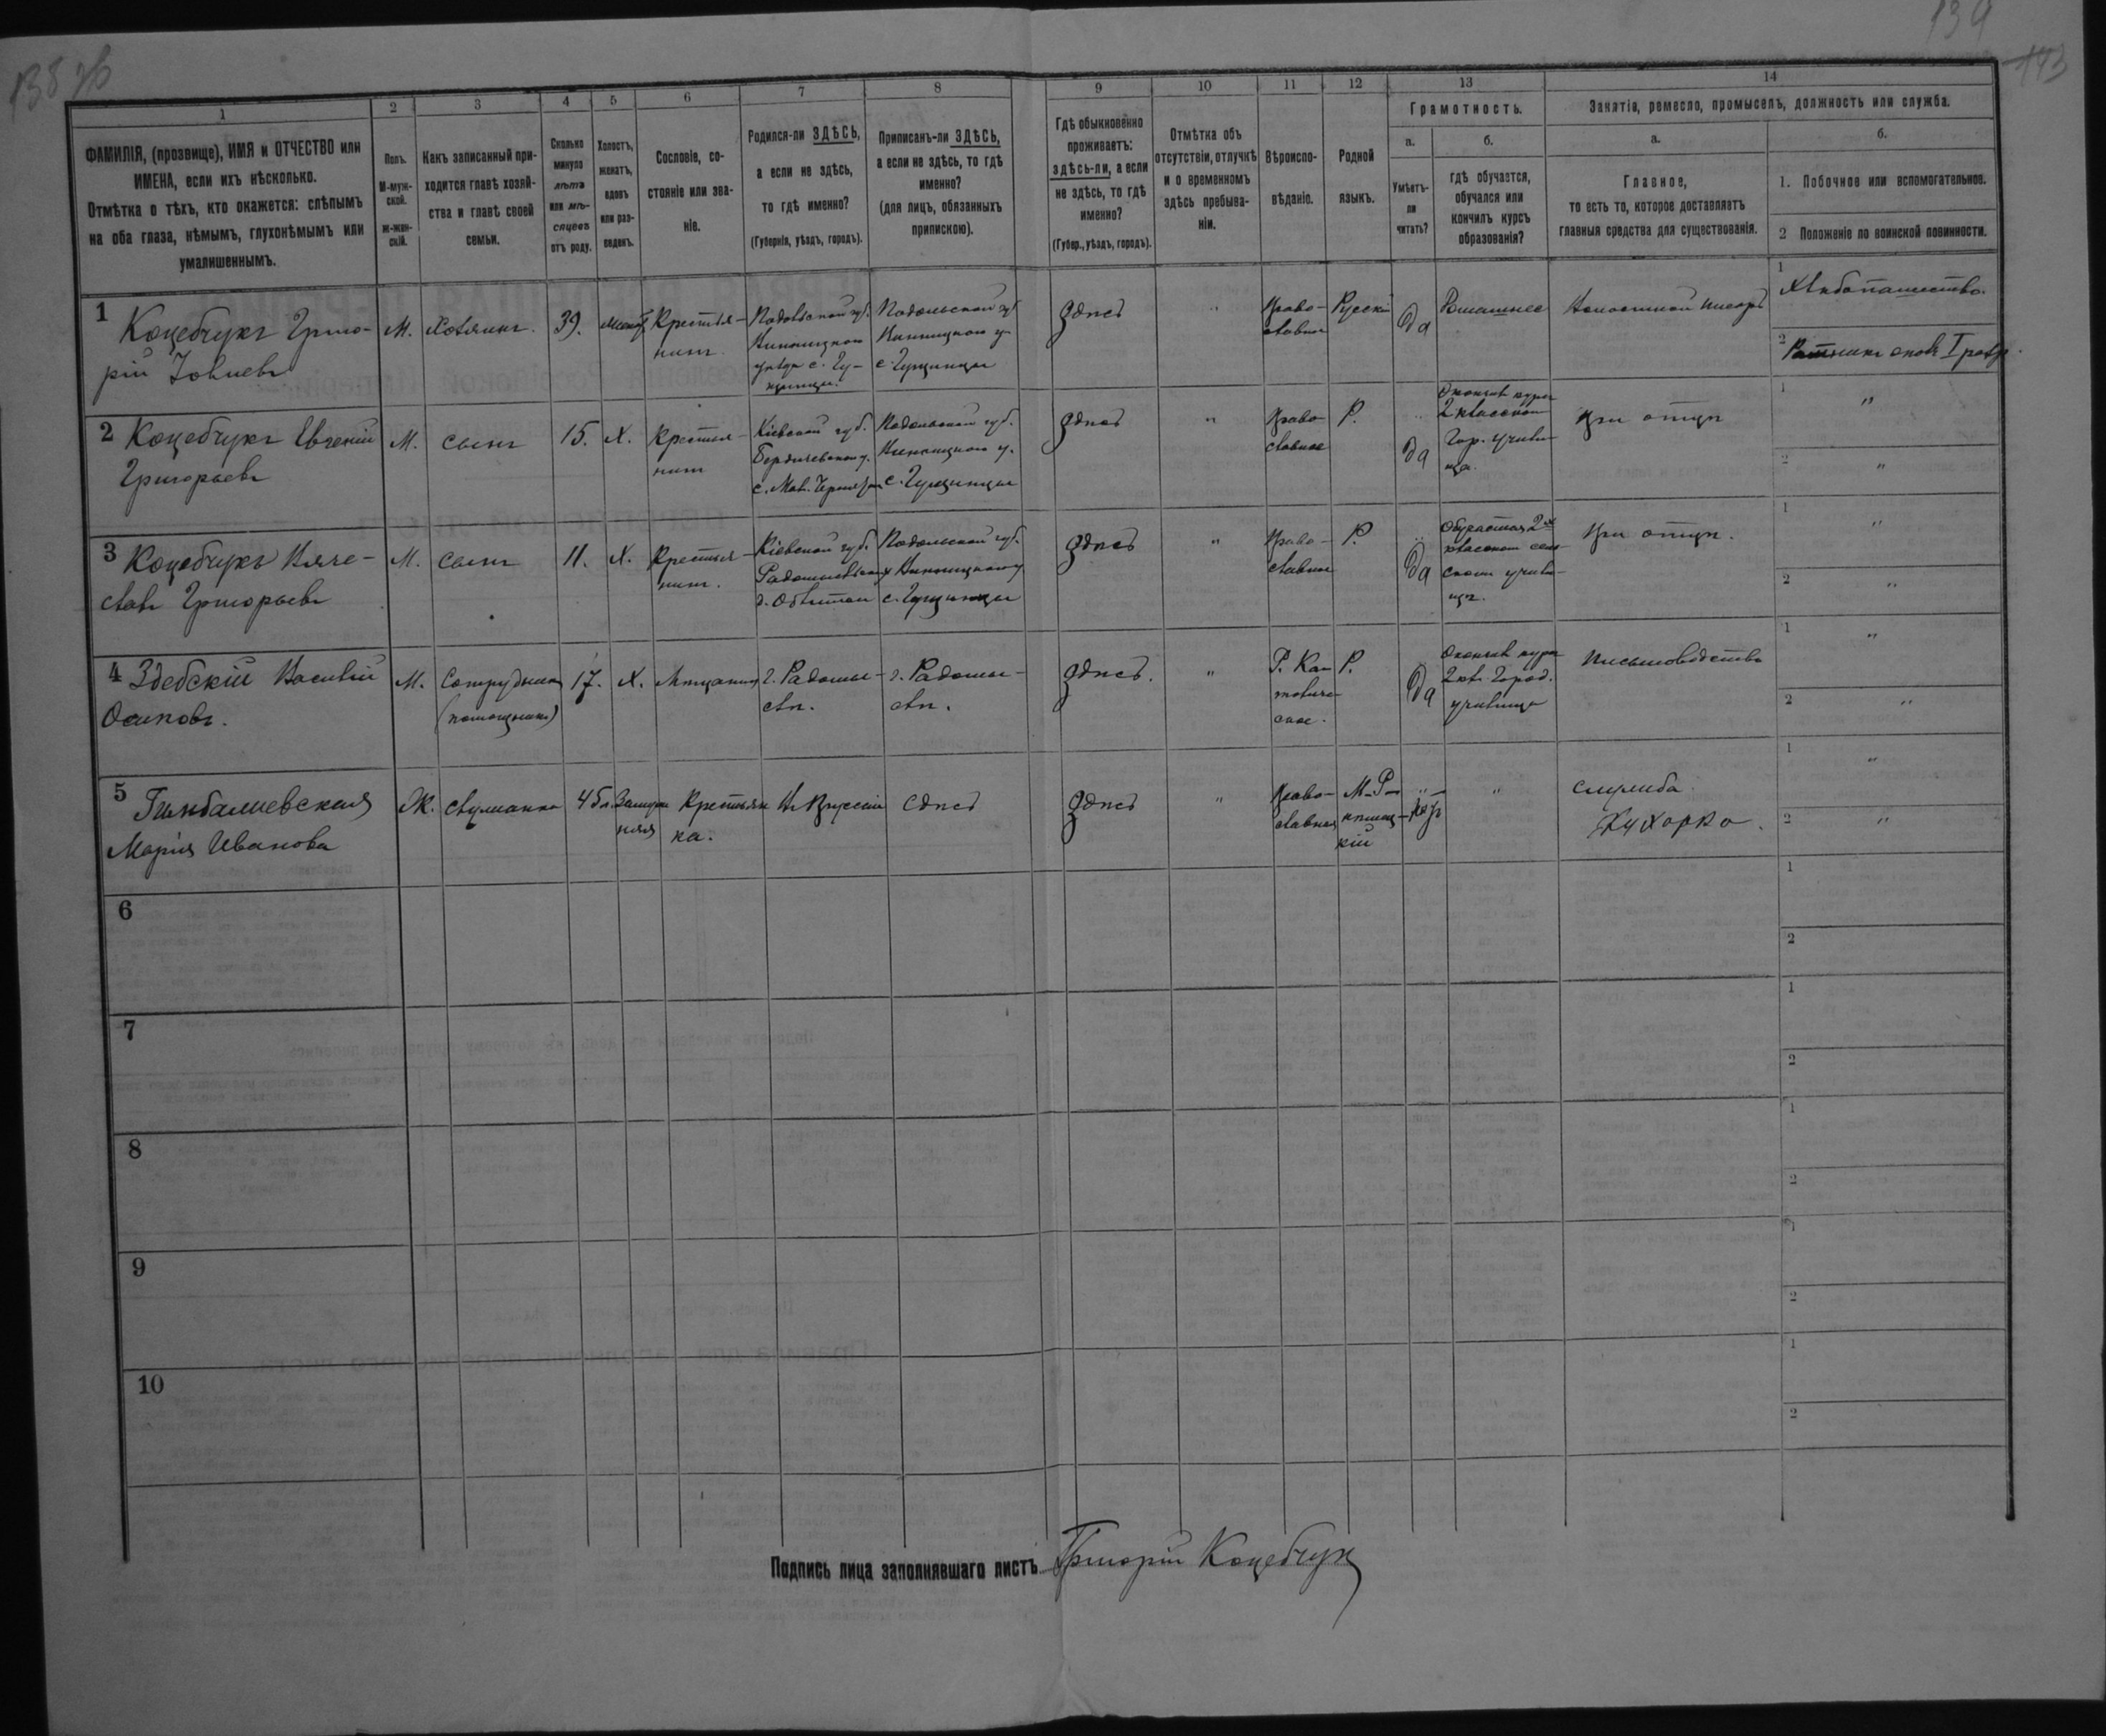 138 об
139
143
1
2
3
4
5
6
7
8
9
10
11
12
13
14
ФАМИЛІЯ, (прозвище), ИМЯ и ОТЧЕСТВО или
ИМЕНА, если ихъ нѣсколько.
Отмѣтка о тѣхъ, кто окажется: слѣпымъ
на оба глаза, нѣмымъ, глухонѣмымъ или
умалишеннымъ.
Полъ.
М-муж-
ской.
Ж-жен-
скій.
Какъ записанный при-
ходится главѣ хозяй-
ства и главѣ своей
семьи.
Сколько
минуло
лѣтъ
или мѣ-
сяцевъ
отъ роду.
Холостъ,
женатъ,
вдовъ
или раз-
веденъ.
Сословіе, со-
стояніе или зва-
ніе.
Родился-ли ЗДѢСЬ,
а если не здѣсь,
то гдѣ именно?
(Губернія, уѣздъ, городъ).
Приписанъ-ли ЗДѢСЬ,
а если не здѣсь, то гдѣ
именно?
(для лицъ, обязанныхъ
припискою).
Гдѣ обыкновенно
проживаетъ:
здѣсь-ли, а если
не здѣсь, то гдѣ
именно?
(Губер., уѣздъ, городъ).
Отмѣтка объ
отсутствіи, отлучкѣ
и о временномъ
здѣсь пребыва-
ніи.
Вѣроиспо-
вѣданіе.
Родной
языкъ.
Грамотность.
а.
Умѣетъ-
ли
читать?
б.
гдѣ обучается,
обучался или
кончилъ курсъ
образованія?
Занятіе, ремесло, промыселъ, должность или служба.
а.
Главное,
то есть то, которое доставляетъ
главныя средства для существованія.
б.
1. Побочное или вспомогательное.
2 Положеніе по воинской повинности.
1
Коцебчукъ Григо-
рій Іовлевъ
М.
Хозяинъ.
39.
Крестья-
нинъ.
Подольской губ.
Винницкого
Подольской губ
Винницкого у
здѣсь
"
Право-
славное
Русскій
да
Домашнее
Волостной писарь
1
Хлѣбопашество.
2
Ратникъ опол. I разр.
2 Коцебчукъ Евгеній
Григорьевъ
М.
сынъ
15.
Х.
Крестья-
нинъ
Кіевской губ.
Бердичевского у.
Подольской губ.
Винницкого у.
здѣсь
"
Право-
славное
Р.
да
Окончилъ курсъ
2 класснаго
Гор. учили-
ща.
при отцѣ
1
"
2
"
3 Коцебчукъ Вяче-
славъ Григорьевъ
М.
сынъ
11.
Х.
Крестья-
нинъ.
Кіевской губ.
Подольской губ.
Винницкого у
здѣсь
"
Право-
славное
Р.
да
Обучается 2х
классномъ сель
скомъ учили-
щѣ.
При отцѣ.
1
"
2
"
4 Здебскій Василій
Осиповъ.
М.
Сотрудникъ
(помощникъ)
17.
Х.
Мѣщанинъ
г. Радомы-
слѣ.
г. Радомы-
слѣ.
здѣсь.
"
Р. Ка-
толиче-
ское.
Р.
да
Окончилъ курсъ
2 кл. Город.
училища
Письмоводство
1
"
2
"
5
Марія Иванова
Ж.
служанка
45
Замуж
няя
Крестьян
ка.
здѣсь
здѣсь
"
Право-
славное
"
служба
Кухарка.
1
"
2
"
6
1
2
7
1
2
8
1
2
9
1
2
10
1
2
Подпись лица заполнявшаго листъ Григорій Коцебчукъ